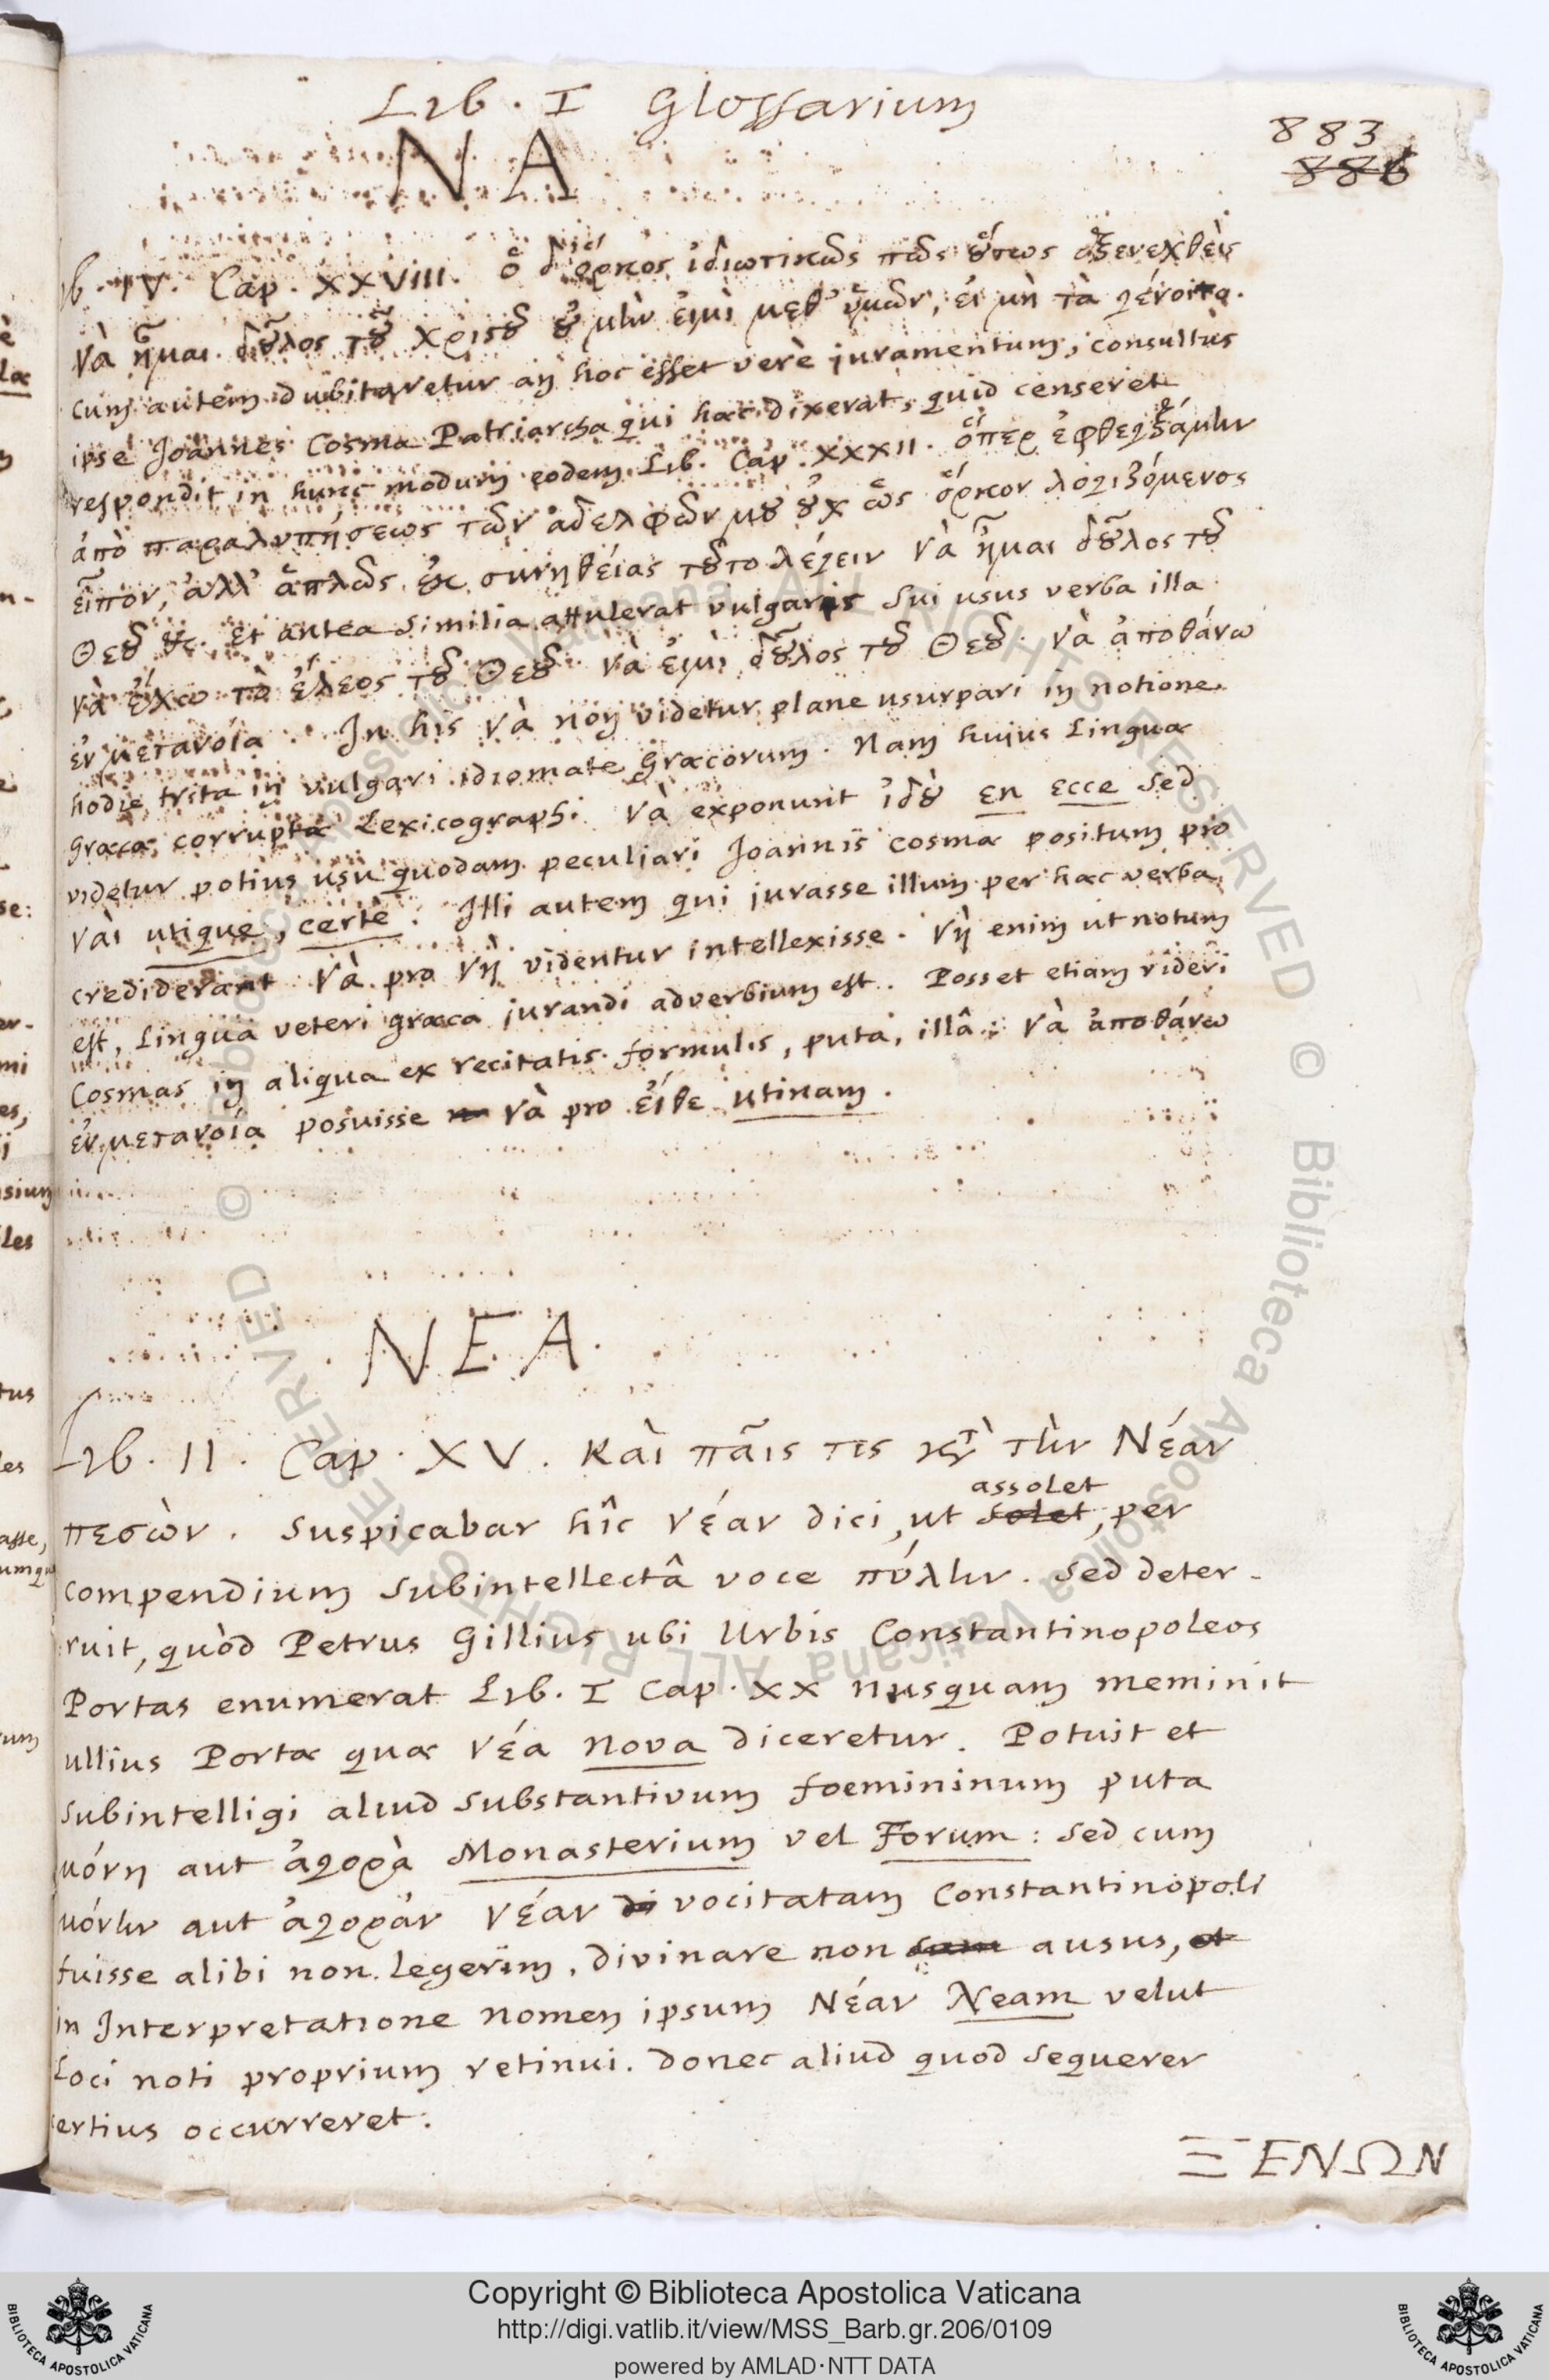 Lib. I Glossarium
883
886
NA
Lib. IV. Cap. XXVIII. ὁ δὲ ὅρκος ἰδιωτικῶς πῶς οὕτως ἐξενεχθεὶς
νὰ ἦμαι δοῦλος τοῦ Χριστοῦ οὐ μὴν εἰμὶ μεθ' ὑμῶν, εἰ μὴ τὰ γένοιτο.
cum autem dubitaretur an hoc esset verè juramentum, consultus
ipse Joannes Cosmas Patriarcha qui hæc dixerat, quid censeret
respondit in hunc modum eodem Lib. Cap. XXXII. ὅπερ ἐφθεγξάμην
ἀπὸ παραλυπήσεως τῶν ἀδελφῶν μου οὐχ ὡς ὅρκον λογιζόμενος
εἶπον, ἀλλ' ἁπλῶς ἐκ συνηθείας τοῦτο λέγειν νὰ ἦμαι δοῦλος τοῦ
Θεοῦ &c. Et antea similia attulerat vulgaris sui usus verba illa
νὰ ἔχω τὸ ἔλεος τοῦ Θεοῦ. νὰ εἰμὶ δοῦλος τοῦ Θεοῦ. νὰ ἀποθάνω
ἐν μετανοίᾳ. In his νὰ non videtur plane usurpari in notione
hodie trita in vulgari idiomate Græcorum. Nam hujus Linguæ
Græcæ corruptæ Lexicographi νὰ exponunt ἰδοὺ en ecce sed
videtur potius usu quodam peculiari Joannis Cosmæ positum pro
ναὶ utique, certè. Illi autem qui jurasse illum per hæc verba
crediderant νὰ pro νὴ videntur intellexisse. νὴ enim ut notum
est, Lingua veteri græca jurandi adverbium est. Posset etiam videri
Cosmas in aliqua ex recitatis formulis, puta, illâ: νὰ ἀποθάνω
ἐν μετανοίᾳ posuisse νὰ pro εἴθε utinam.
NEA.
Lib. II. Cap. XV. Καὶ παῖς τις κατὰ τὴν Νέαν
assolet
πεσών. Suspicabar hîc νέαν dici, ut solet, per
compendium subintellectâ voce πύλην. Sed deter-
ruit, quòd Petrus Gillius ubi Urbis Constantinopoleos
Portas enumerat Lib. I Cap. XX nusquam meminit
ullius Portæ quæ νέα nova diceretur. Potuit et
subintelligi aliud substantivum foemininum puta
μόνη aut ἀγορὰ Monasterium vel Forum: Sed cum
μόνην aut ἀγορὰν νέαν di vocitatam Constantinopoli
fuisse alibi non legerim, divinare non sum ausus, et
in Interpretatione nomen ipsum Νέαν Neam velut
Loci noti proprium retinui. donec aliud quod sequerer
certius occurreret.
ΞΕΝΩΝ
Copyright © Biblioteca Apostolica Vaticana
http://digi.vatlib.it/view/MSS_Barb.gr.206/0109
powered by AMLAD·NTT DATA